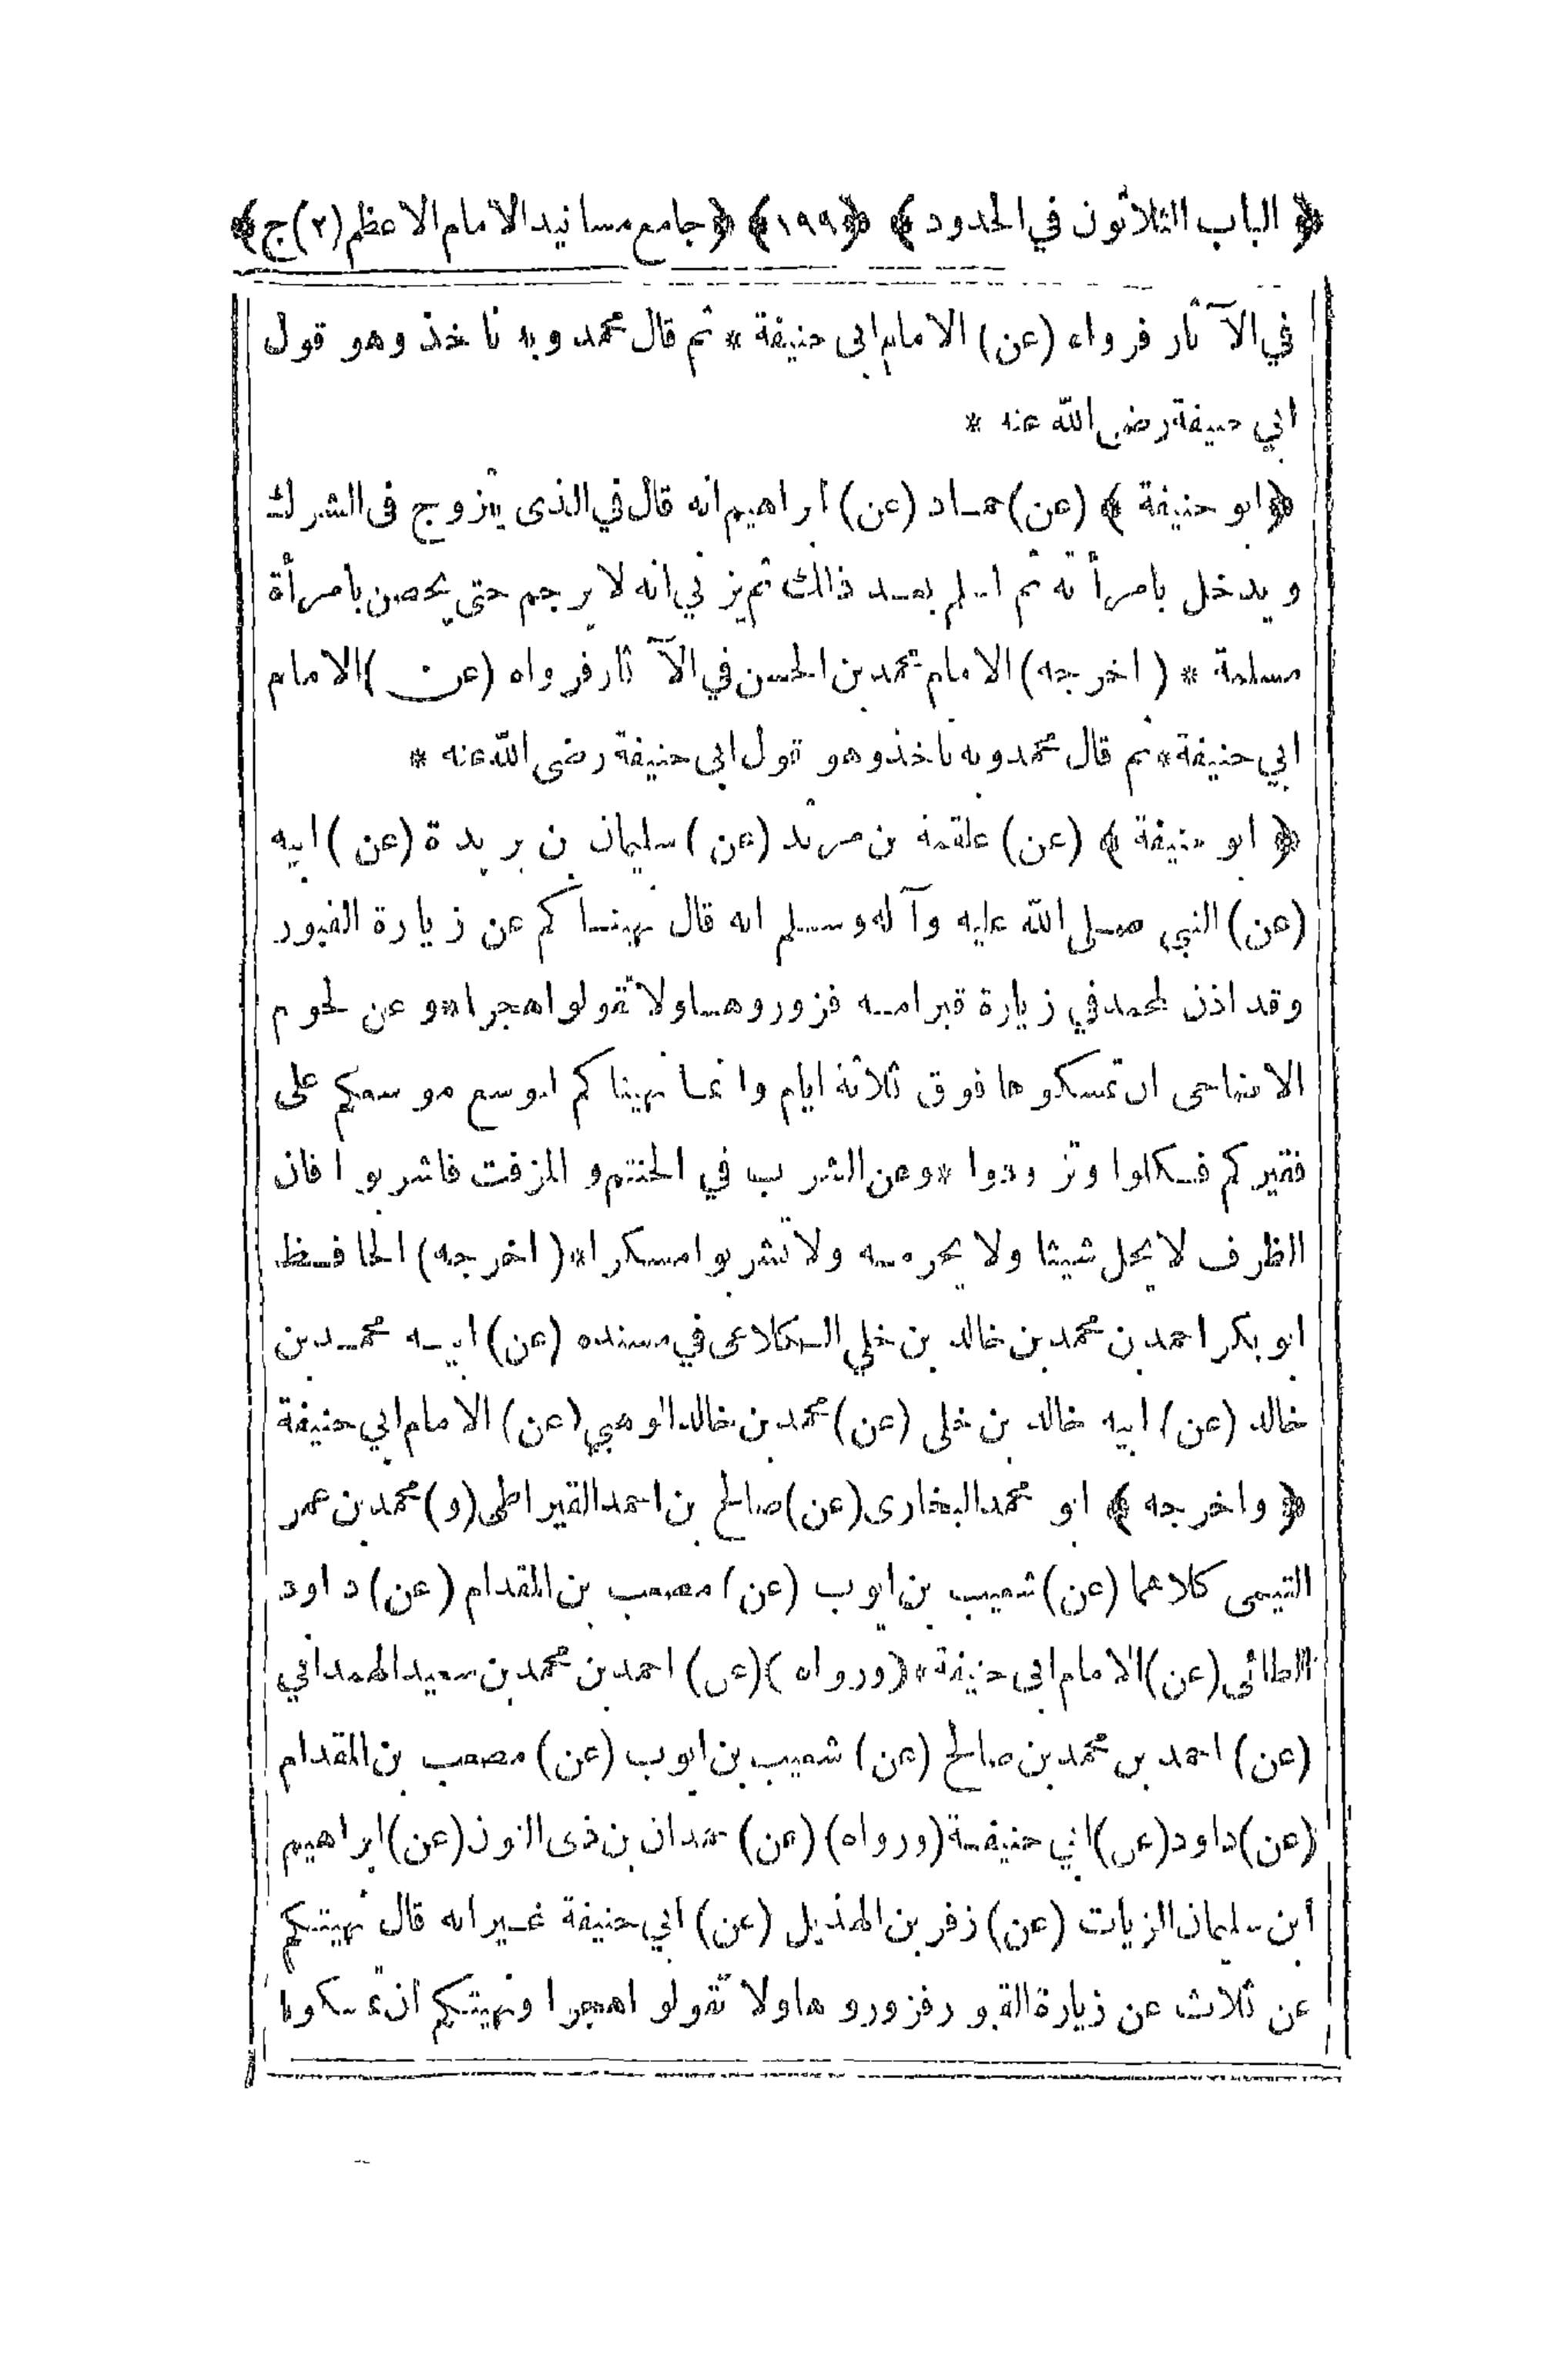 ﴿ الباب الثلاثون في الحدود ﴾ ﴿١٩٩﴾ ﴿جامع مسانيد الامام الاعظم (٢) ج﴾
في الآثار فرواه (عن) الامام ابى حنيفة * ثم قال محمد وبه ناخذ وهو قول
ابي حنيفة رضى الله عنه *
﴿ابو حنيفة ﴾ (عن) حماد (عن) ابراهيم انه قال في الذى يتزوج فى الشرك
و يدخل بامرأته ثم اسلم بعد ذالك ثم يزني انه لا يرجم حتى يحصن بامرأة
مسلمة * (اخرجه) الامام محمد بن الحسن في الآثار فرواه (عن) الامام
ابي حنيفة * ثم قال محمد وبه ناخذ وهو قول ابى حنيفة رضى الله عنه *
﴿ ابو حنيفة ﴾ (عن) علقمة بن مرثد (عن) سليمان بن بريدة (عن) ابيه
(عن) النبي صلى الله عليه وآله وسلم انه قال نهيناكم عن زيارة القبور
وقد اذن لمحمد في زيارة قبر امه فزوروها ولا تقولوا هجرا * وعن لحوم
الاضاحى ان تمسكوها فوق ثلاثة ايام وانما نهيناكم ليوسع موسعكم على
فقيركم فكلوا وتزودوا * وعن الشرب في الحنتم و المزفت فاشربوا فان
الظرف لا يحل شيئا ولا يحرمه ولا تشربوا مسكرا * (اخرجه) الحافظ
ابو بكر احمد بن محمد بن خالد بن خلي الكلاعى في مسنده (عن) ابيه محمد بن
خالد (عن) ابيه خالد بن خلى (عن) محمد بن خالد الوهبي (عن) الامام ابي حنيفة
﴿ واخرجه ﴾ ابو محمد البخارى (عن) صالح بن احمد القيراطى (و) محمد بن عمر
التيمى كلاهما (عن) شعيب بن ايوب (عن) مصعب بن المقدام (عن) داود
الطائى (عن) الامام ابى حنيفة * (ورواه) (عن) احمد بن محمد بن سعيد الهمداني
(عن) احمد بن محمد بن صالح (عن) شعيب بن ايوب (عن) مصعب بن المقدام
(عن) داود (عن) ابي حنيفة (ورواه) (عن) حمدان بن ذى النون (عن) ابراهيم
ابن سليمان الزيات (عن) زفر بن الهذيل (عن) ابي حنيفة غير انه قال نهيتكم
عن ثلاث عن زيارة القبور فزوروها ولا تقولوا هجرا ونهيتكم ان تمسكوا